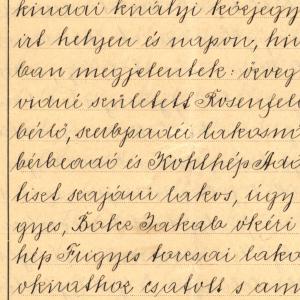 kindai királyi közjegy
irt helyen és napon, hiv
ban megjelentek: özveg
vidné született Rosenfel
bérlő, szubpadéi lakosn
bérbeadó és Kohlhép Ádá
liszt szajáni lakos, úgy
gyes, Balcz Jakab okéri
hép Frigyes torzsai lako
okirathoz csatolt s am